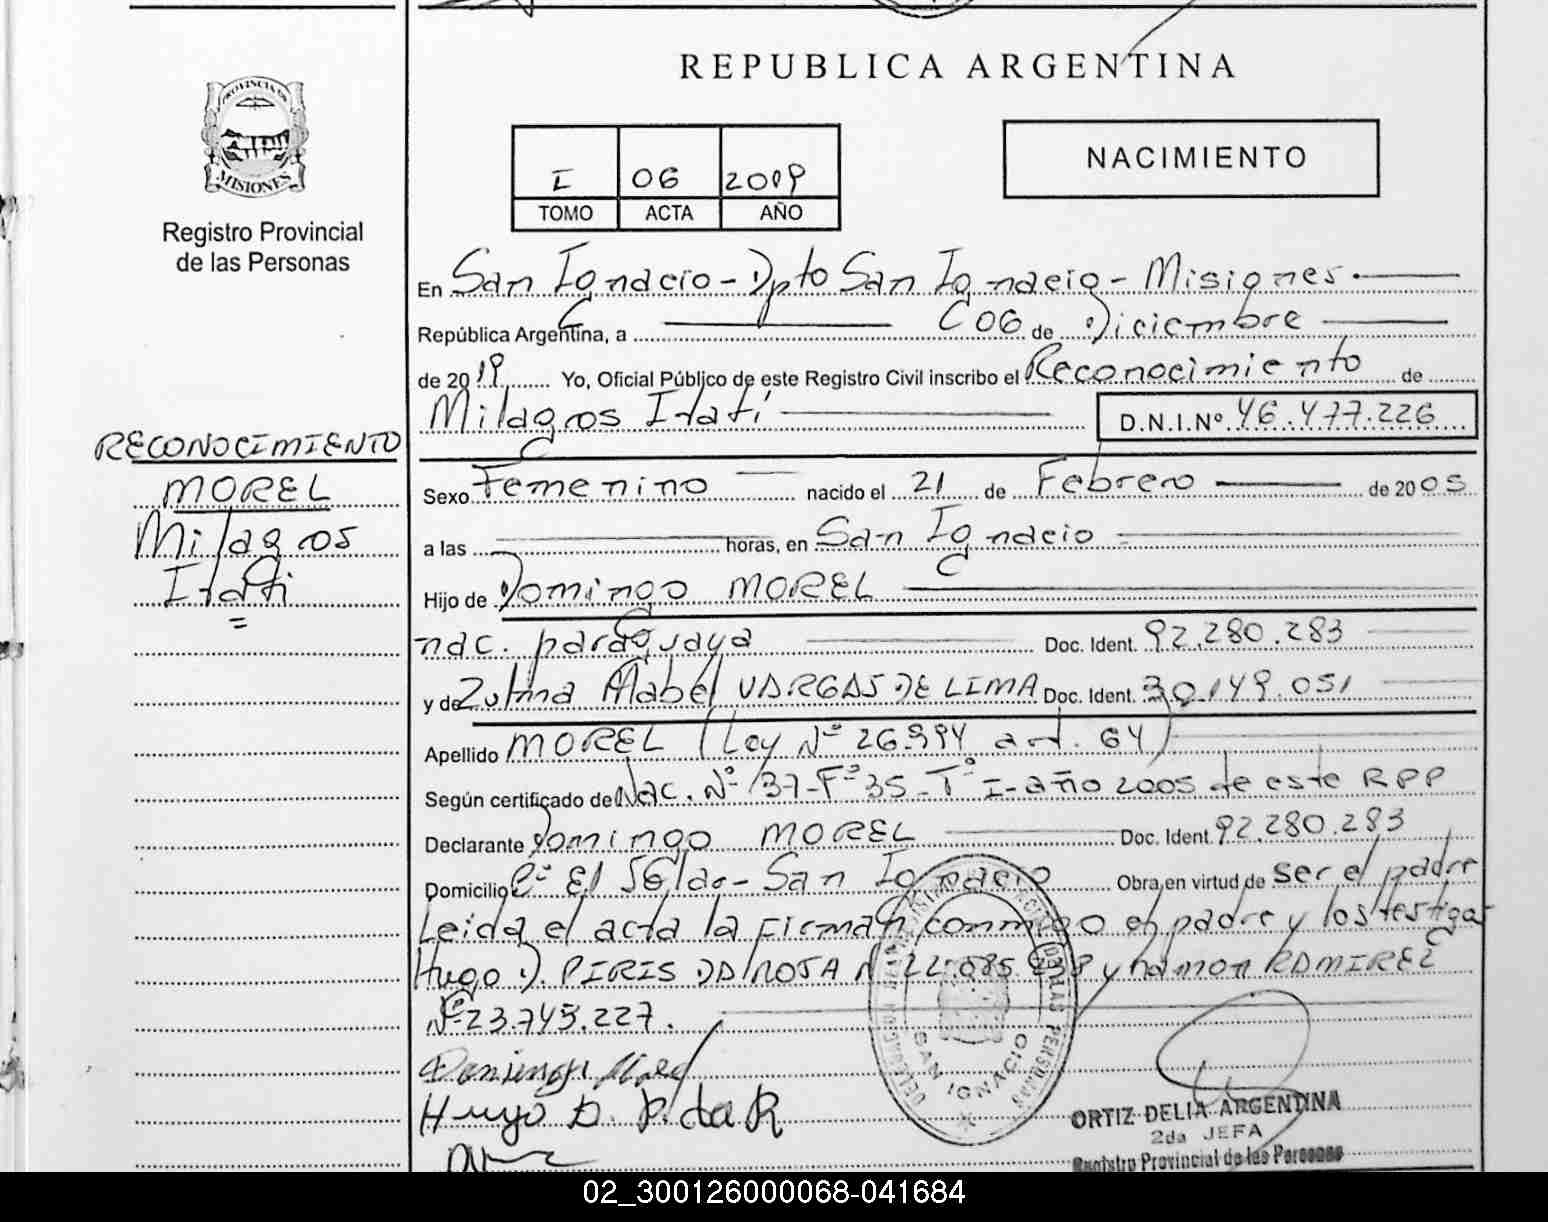 REPUBLICA ARGENTINA
PROVINCIA DE
MISIONES
Registro Provincial
de las Personas
I 06 2019
TOMO ACTA AÑO
NACIMIENTO
En San Ignacio - Dpto San Ignacio - Misiones.
República Argentina, a 06 de Diciembre
de 2019 Yo, Oficial Público de este Registro Civil inscribo el Reconocimiento de
Milagros Itatí D.N.I.Nº 46.477.226
RECONOCIMIENTO
MOREL
Milagros
Itati
=
Sexo Femenino nacido el 21 de Febrero de 2005
a las horas, en San Ignacio
Hijo de Domingo MOREL
nac. paraguaya Doc. Ident. 92.280.283
y de Zulma Mabel VARGAS DE LIMA Doc. Ident. 30.149.051
Apellido MOREL (Ley Nº 26.994 art. 64)
Según certificado de Nac. Nº 137-Fº 35-Tº I-año 2005 de este RPP
Declarante Domingo MOREL Doc. Ident. 92.280.283
Domicilio Bº El - San Ignacio Obra en virtud de ser el padre
Leida el acta la Firman conmigo el padre y los testigos
Hugo D. PIRIS DA ROSA Nº y Ramon RAMIREZ
Nº 23.745.227.
Domingo Morel
Hugo D. P. da R
DELEGACION
DE LAS PERSONAS
SAN IGNACIO
ORTIZ DELIA ARGENTINA
2da JEFA
Registro Provincial de las Personas
02_300126000068-041684